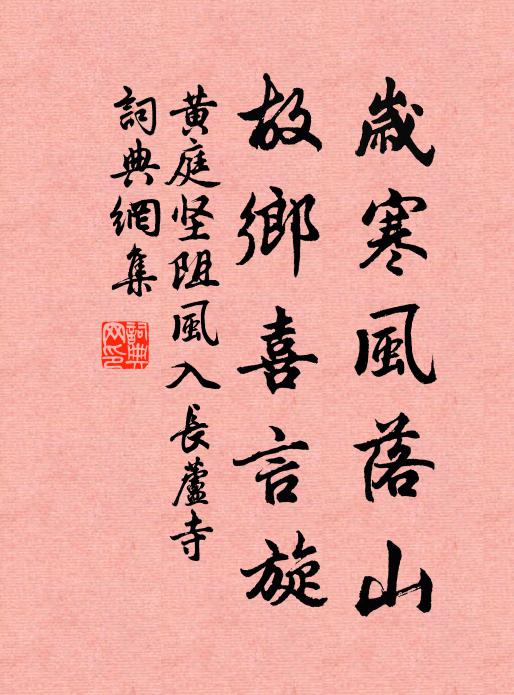 歲寒風落山
故鄉喜言旋
黃庭坚阻風入長蘆寺
詞典網集
詞典網印